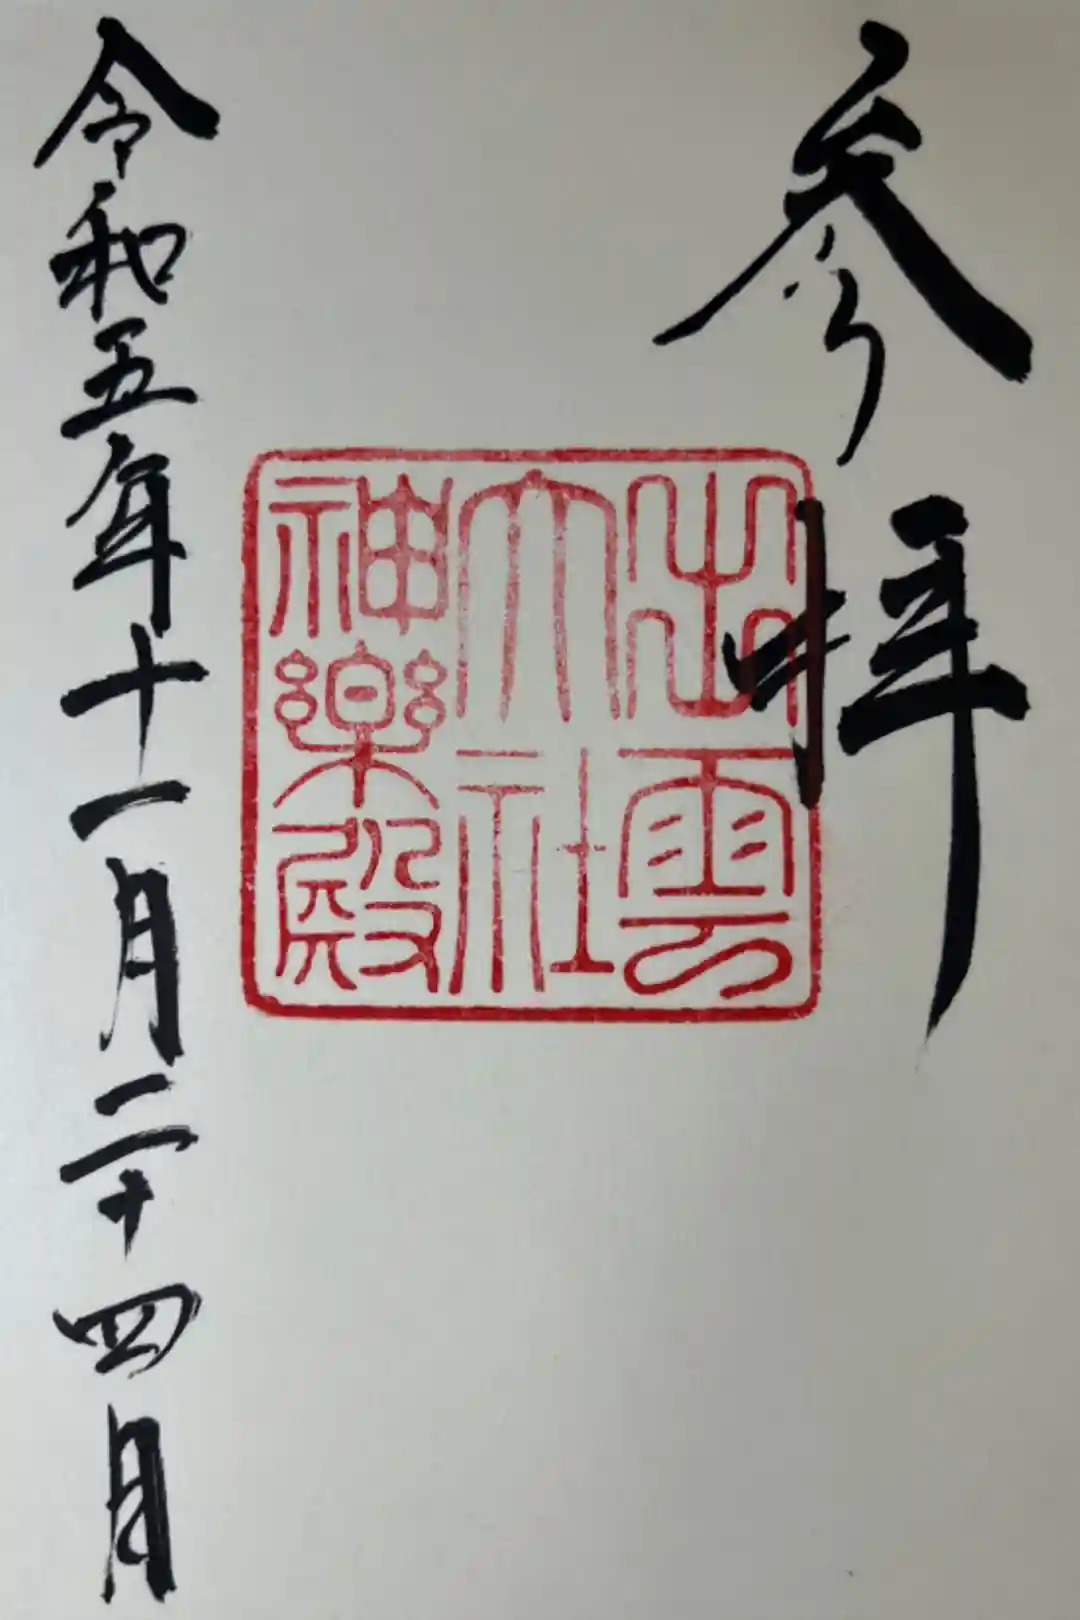 参拝
出雲
大社
神樂殿
令和五年十一月二十四日